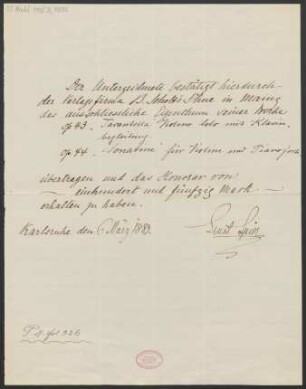 Der Unterzeichnete bestätigt hierdurch
der Verlagsfirma B. Schott's Söhne in Mainz
das ausschliessliche Eigenthum seiner Werke
op 43. Tarantella Violino Solo mit Klavier
begleitung
op. 44. Sonatine für Violine und Pianoforte
übertragen und das Honorar von
— einhundert und fünfzig Mark —
erhalten zu haben.
Karlsruhe den 6 März
Ernst